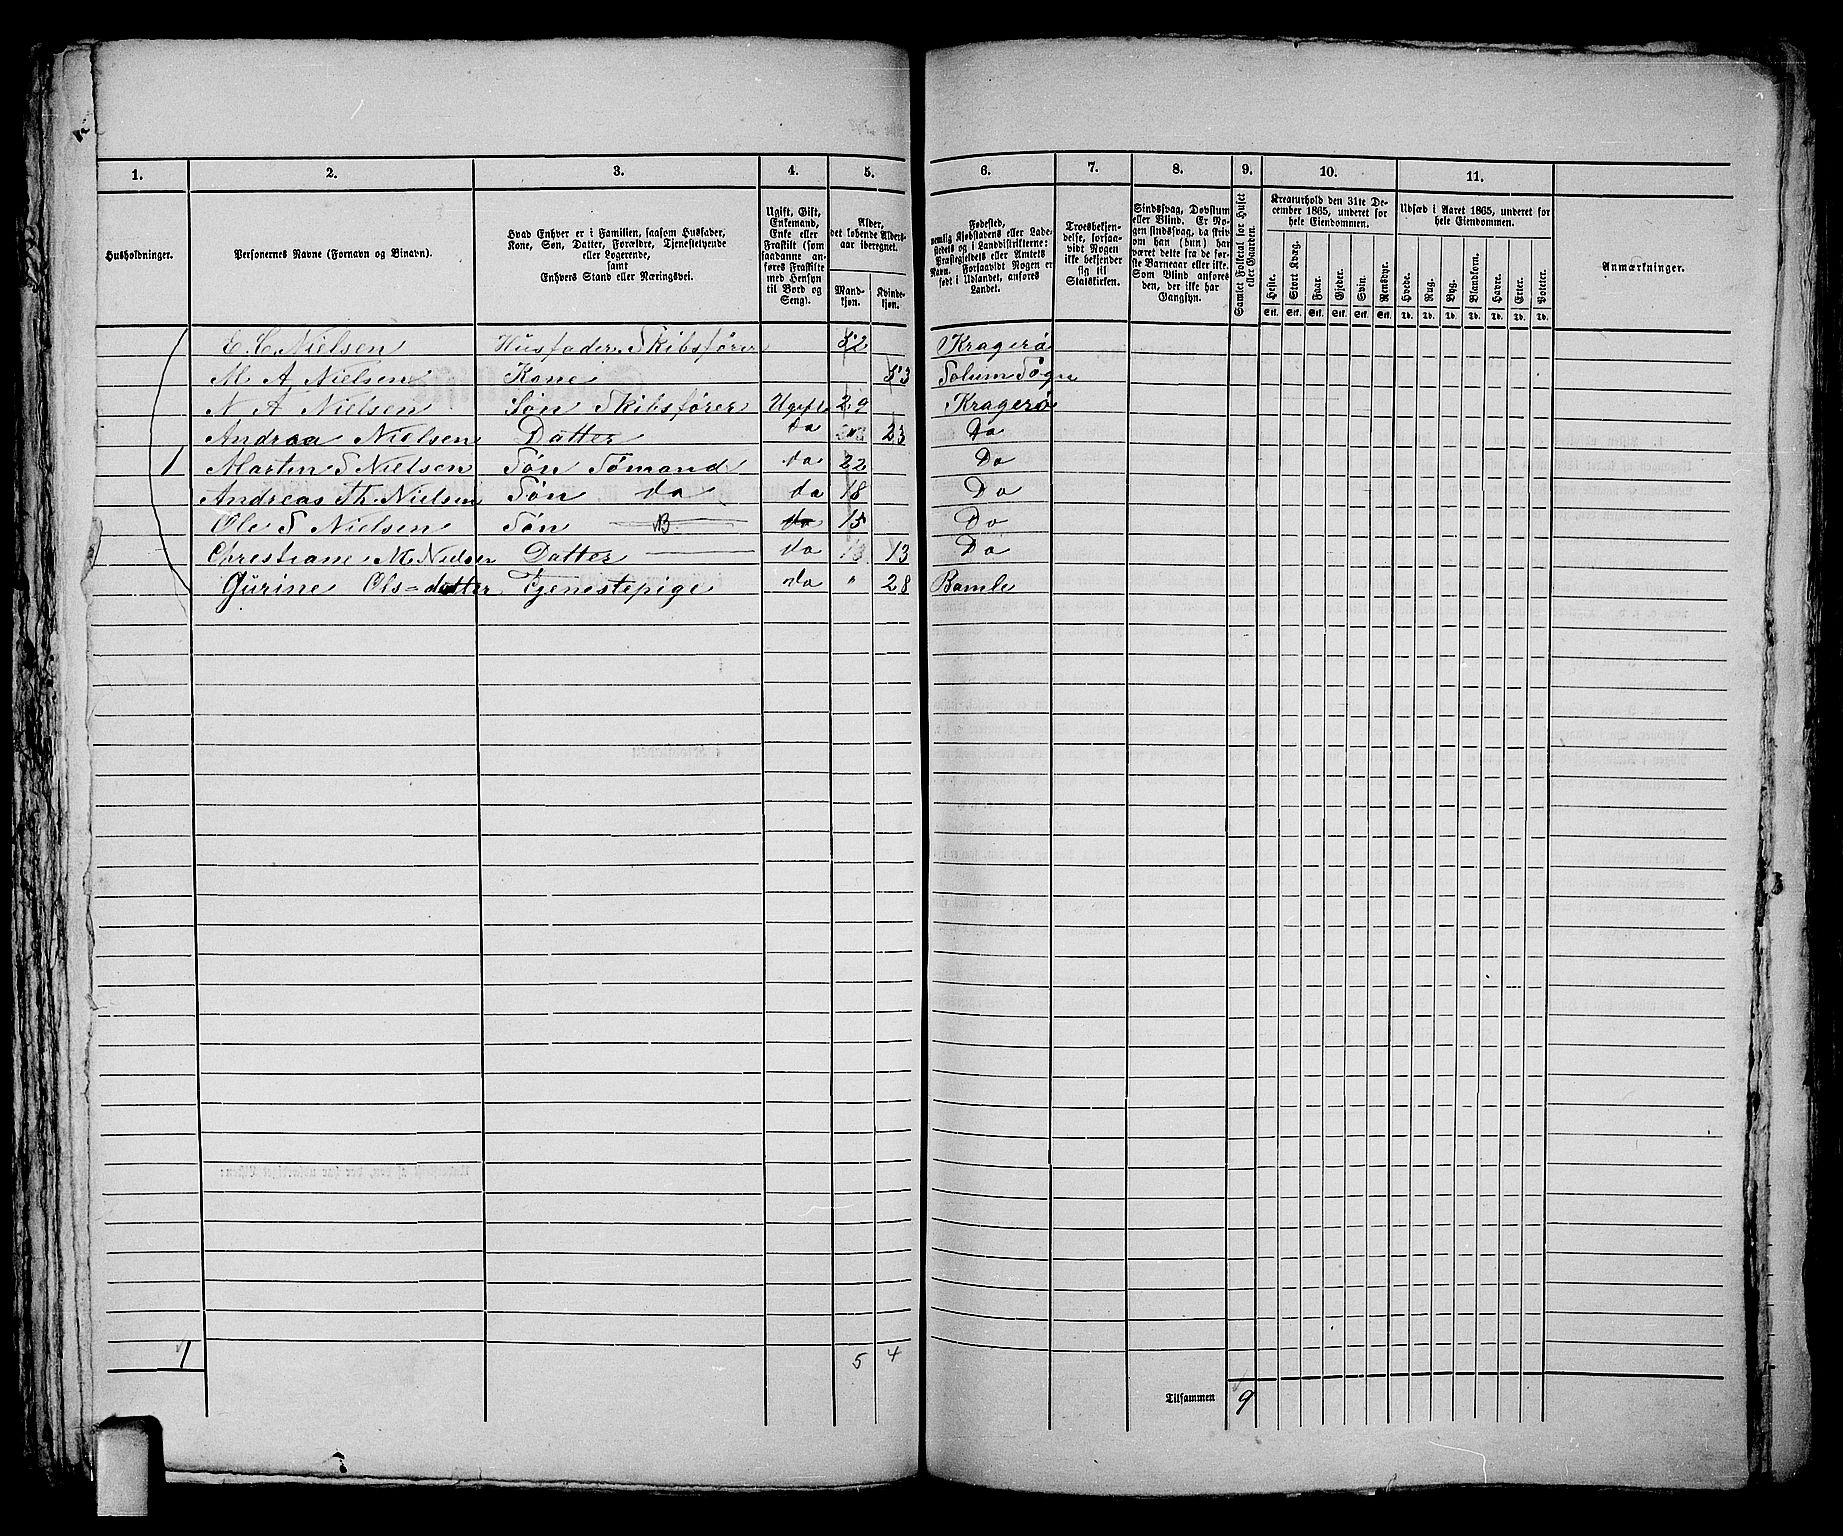 1. 2. 3. 4. 5. 6. 7. 8. 9. 10. 11.
Husholdninger.
Personernes Navne (Fornavn og Binavn).
Hvad Enhver er i Familien, saasom Husfader,
Kone, Søn, Datter, Forældre, Tjenestetyende
eller Logerende,
samt
Enhvers Stand eller Næringsvei.
Ugift, Gift,
Enkemand,
Enke eller
Fraskilt (som
saadanne an-
føres Fraskilte
med Hensyn
til Bord og
Seng).
Alder,
det løbende Alders-
aar iberegnet.
Mand-
kjøn.
Kvinde-
kjøn.
Fødested,
nemlig Kjøbstadens eller Lade-
stedets og i Landdistrikterne:
Præstegjeldets eller Amtets
Navn. Forsaavidt Nogen er
født i Udlandet, anføres
Landet.
Troesbekjen-
delse, forsaa-
vidt Nogen
ikke bekjender
sig til
Statskirken.
Sindssvag, Døvstum
eller Blind. Er No-
gen sindssvag, da skriv
om han (hun) har
været dette fra de før-
ste Barneaar eller ikke.
Som Blind anføres
den, der ikke har
Gangsyn.
Samlet Folketal for Huset
eller Gaarden.
Kreaturhold den 31te De-
cember 1865, underet for
hele Eiendommen.
Heste. Stort Kvæg. Faar. Gjeder. Svin. Rensdyr.
Stk. Stk. Stk. Stk. Stk. Stk.
Udsæd i Aaret 1865, underet for
hele Eiendommen.
Hvede. Rug. Byg. Blandkorn. Havre. Erter. Poteter.
Td. Td. Td. Td. Td. Td. Td.
Anmærkninger.
E. C. Nielsen Husfader. Skibsfører 52 Kragerø
M. A. Nielsen Kone 53 Solum Sogn
N A Nielsen Søn Skibsfører Ugift 29 Kragerø
Andrea Nielsen Datter do 23 Do
1 Marten S Nielsen Søn Sømand do 22 Do
Andreas Th. Nielsen Søn do do 18 Do
Ole S Nielsen Søn do 15 Do
Chrestiane M. Nielsen Datter do 13 Do
Gurine Ols=datter Tjenestepige do " 28 Bamle
1 5 4
Tilsammen 9